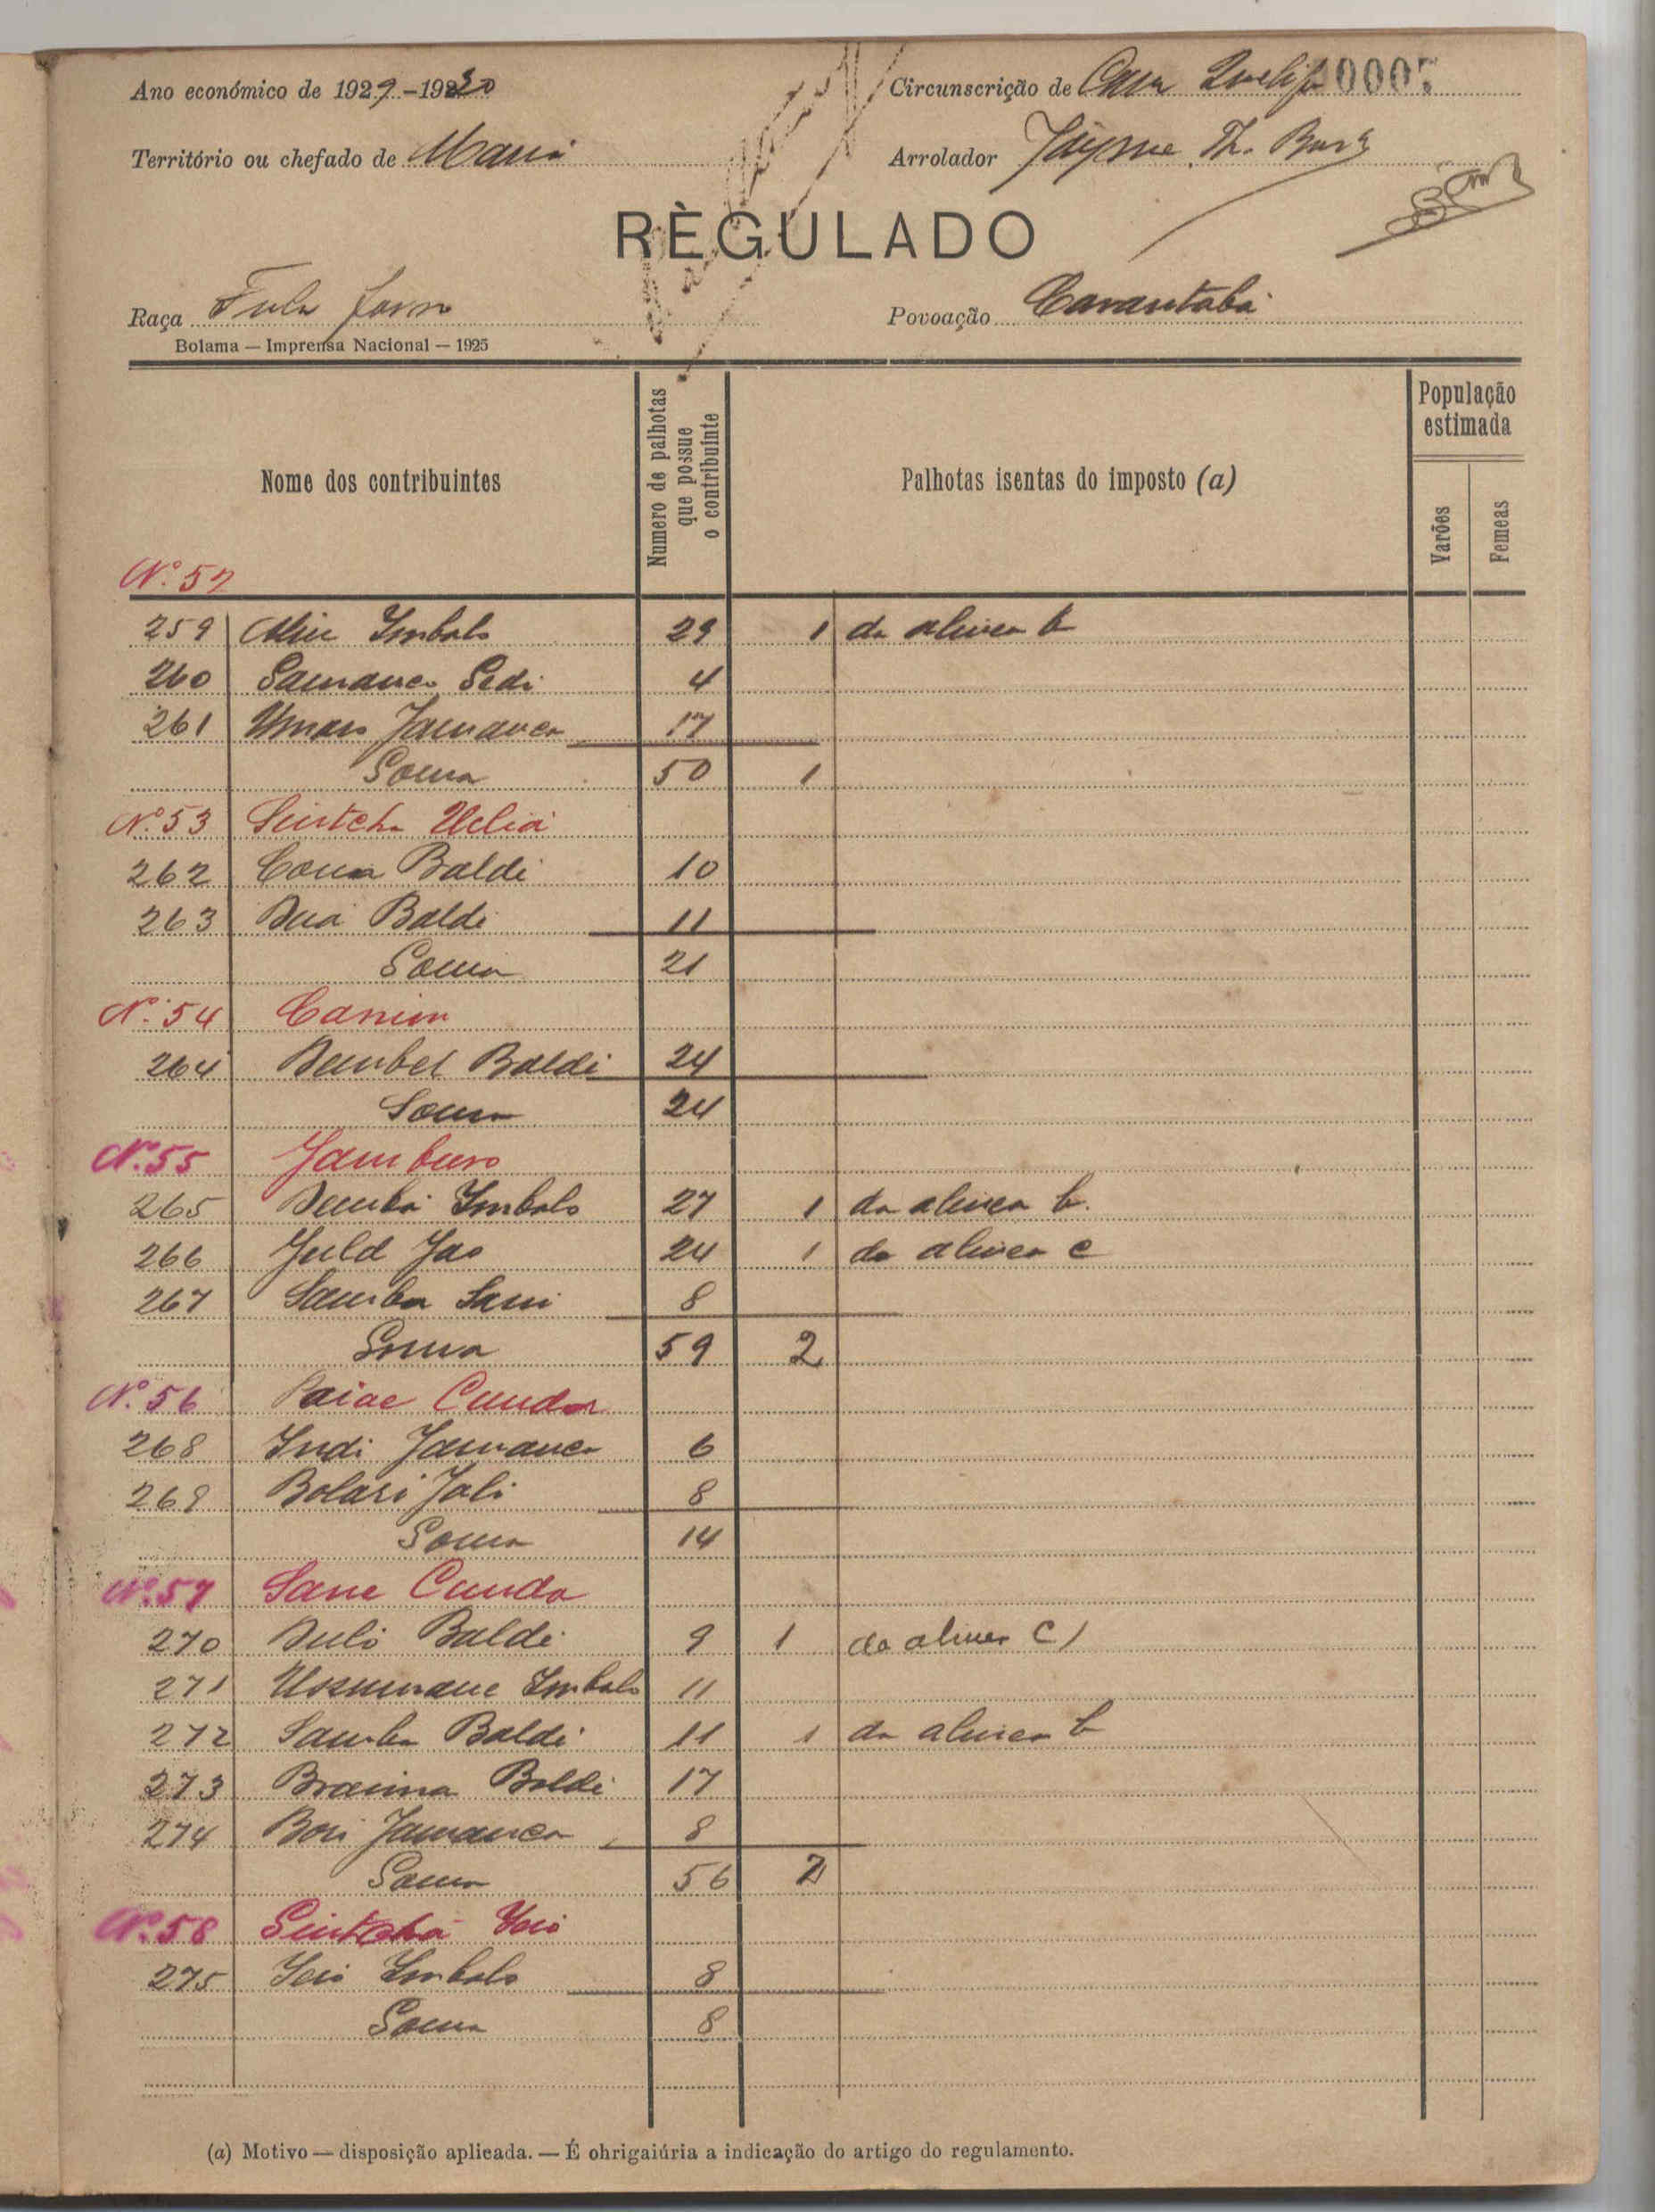 Ano económico de 1929-1930
Circunscrição de 0007
Território ou chefado de Maná
Arrolador Jayme Th.
RÈGULADO
Raça Fula forro
Povoação Carantabá
Bolama — Imprensa Nacional — 1925
Nome dos contribuintes
Numero de palhotas que possue o contribuinte
Palhotas isentas do imposto (a)
População estimada
Varões
Femeas
259 Aliu Imbalo 29 1 da alinea b
260 Samance Sedi 4
261 Umaro Jamanca 17
Soma 50 1
Nº 53 Sintcha
262 Baldé 10
263 Baldé 11
Soma 21
Nº 54
264 Dembel Baldé 24
Soma 24
Nº 55
265 Demba Imbalo 27 1 da alinea b.
266 Juld Jao 24 1 da alinea c
267 Samba Sani 8
Soma 59 2
Nº 56 Cunda
268 Indi Jamanca 6
269 Bolari Jali 8
Soma 14
Nº 57 Sane Cunda
270 Duló Baldé 9 1 da alinea c)
271 Ussumane Imbalo 11
272 Samba Baldé 11 1 da alinea b
273 Braima Baldé 17
274 Bori Jamanca 8
Soma 56 2
Nº 58 Sintchã Ioió
275 Ioió Imbalo 8
Soma 8
(a) Motivo — disposição aplicada. — É ohrigaiúria a indicação do artigo do regulamento.